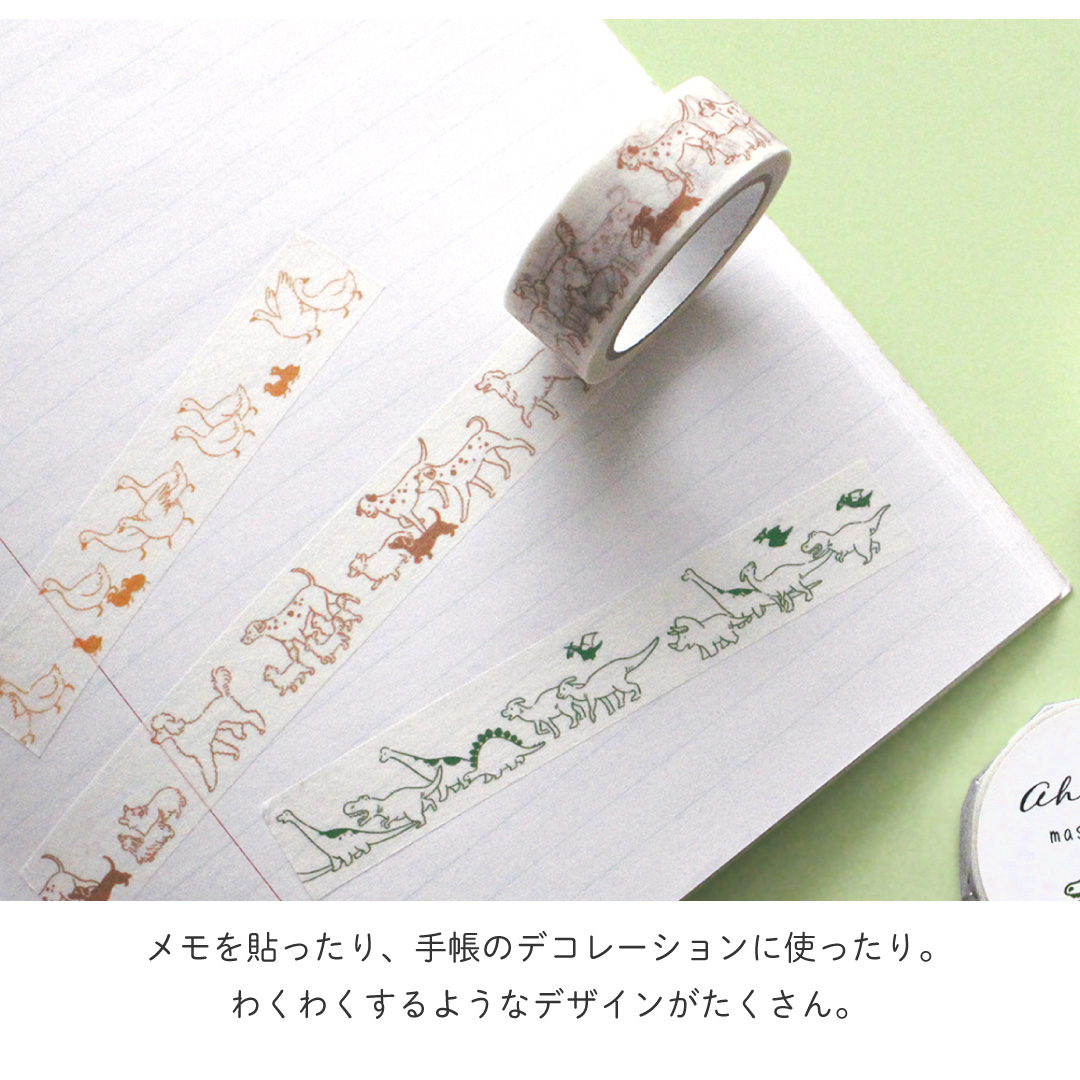 メモを貼ったり、手帳のデコレーションに使ったり。
わくわくするようなデザインがたくさん。